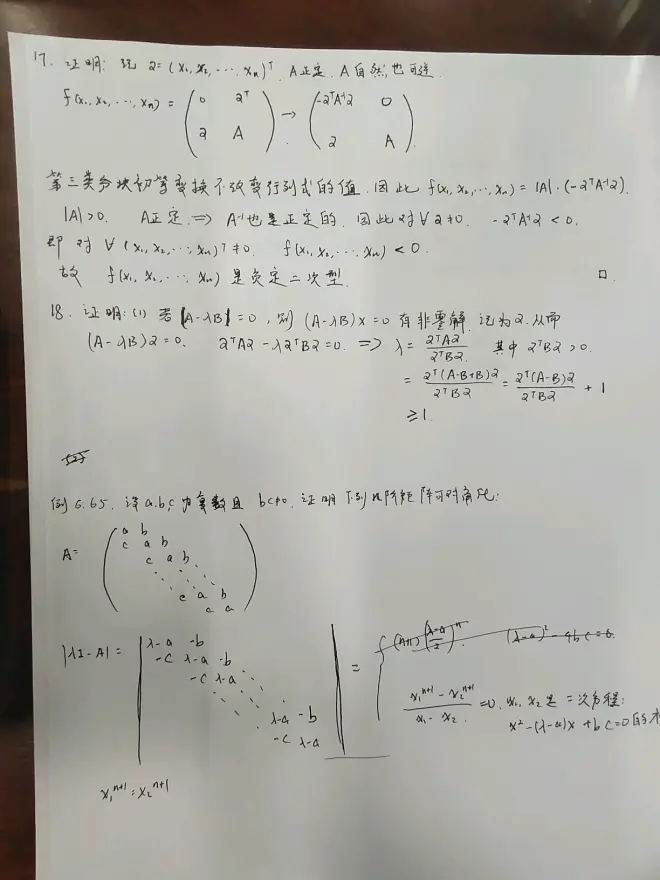 17. 证明: 记 α=(x₁, x₂, ..., xₙ)ᵀ. A正定. A自然也可逆.
f(x₁, x₂, ..., xₙ) = ( 0 αᵀ → ( -αᵀA⁻¹α 0
α A ) α A ).
第三类分块初等变换不改变行列式的值. 因此 f(x₁, x₂, ..., xₙ) = |A|·(-αᵀA⁻¹α).
|A|>0. A正定. ⇒ A⁻¹也是正定的. 因此对∀α≠0. -αᵀA⁻¹α < 0.
即对∀(x₁, x₂, ..., xₙ)ᵀ≠0. f(x₁, x₂, ..., xₙ) < 0.
故 f(x₁, x₂, ..., xₙ) 是负定二次型. □.
18. 证明: (1) 若|A-λB|=0, 则 (A-λB)x=0 有非零解. 记为α. 从而
(A-λB)α=0. αᵀAα-λαᵀBα=0. ⇒ λ= αᵀAα/αᵀBα. 其中 αᵀBα>0.
= αᵀ(A-B+B)α/αᵀBα = αᵀ(A-B)α/αᵀBα + 1
≥1.
(2)
例6.65. 设a.b.c为复数且 bc≠0. 证明下列n阶矩阵可对角化:
A= ( a b
c a b
c a b
c a b
c a )
|λI-A| = | λ-a -b
-c λ-a -b
-c λ-a
λ-a -b
-c λ-a | =
(n+1)(λ-a/2)ⁿ. (λ-a)²-4bc=0.
x₁ⁿ⁺¹-x₂ⁿ⁺¹/x₁-x₂ =0. x₁, x₂是二次方程:
x²-(λ-a)x+bc=0的
x₁ⁿ⁺¹=x₂ⁿ⁺¹